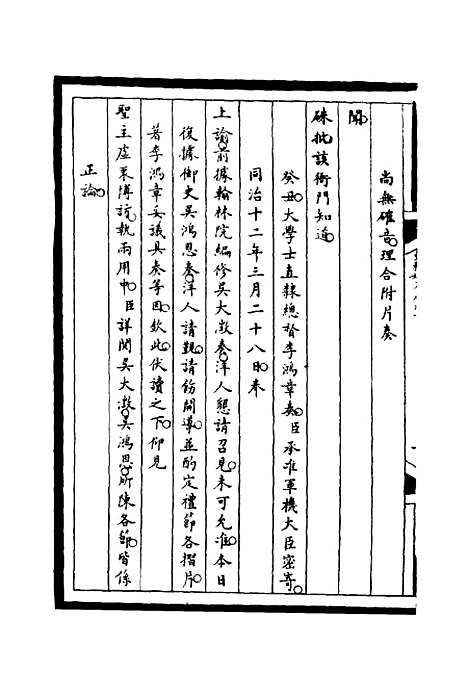 尚無確音。理合附片奏
聞。
硃批。該衙門知道。
癸丑。大學士直隸總督李鴻章奏。臣承准軍機大臣密寄。
同治十二年三月二十八日。奉
上諭。前據翰林院編修吳大澂奏。洋人懇請召見。未可允准。本日
復據御史吳鴻恩奏。洋人請覲。請飭開導。並酌定禮節各摺片。
著李鴻章妥議具奏等因。欽此。伏讀之下。仰見
聖主虛衷博訪。執兩用中。臣詳閱吳大澂。吳鴻恩所陳各節。皆係
正論。